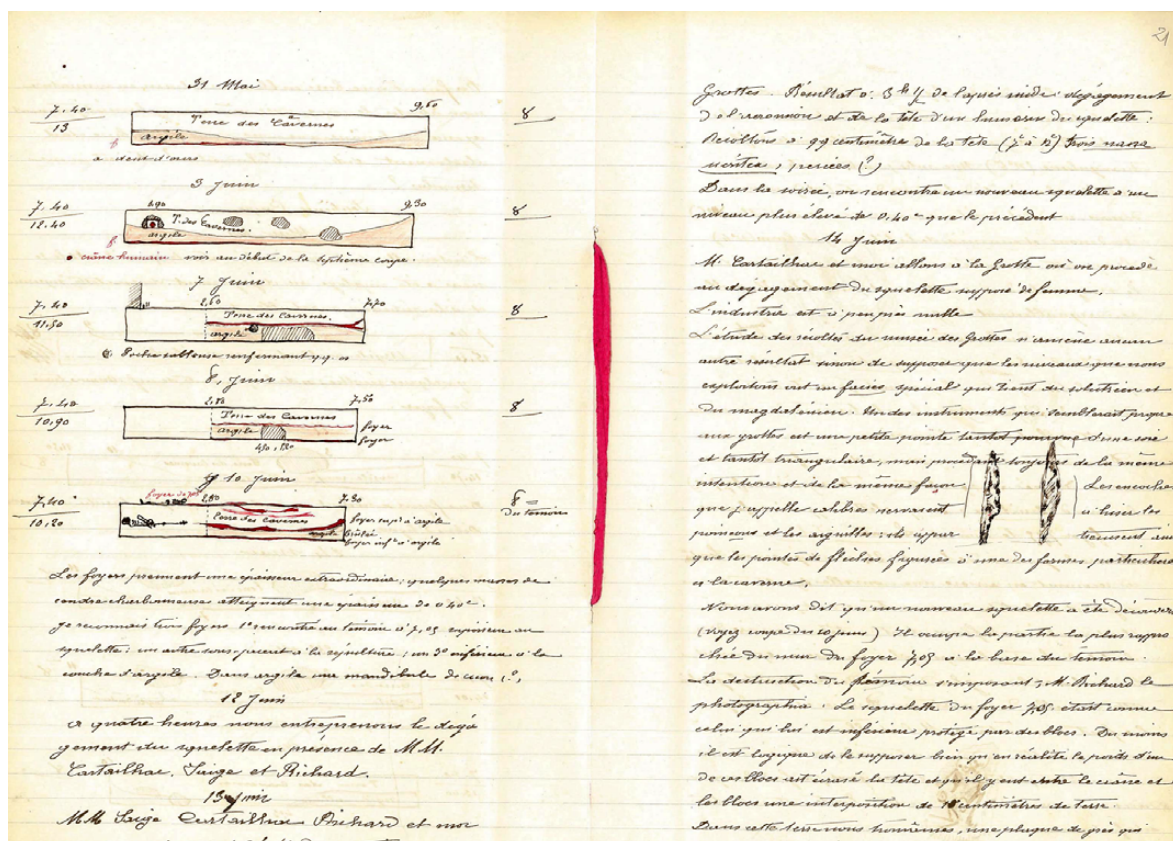 31 Mai
7.40
13
9,60
8
Terre des Cavernes
argile
a dent d'ours
3 Juin
7.40
12.40
9,30
8
T. des Cavernes
argile
crâne humain voir au début de la septième coupe.
7 Juin
7.40
11,50
2,60
7,70
8
Terre des Cavernes.
argile
Poche sableuse renfermant qq. os
8, Juin
7.40
10,90
2,80
7,50
8
Terre des Cavernes
argile
foyer
foyer
10 Juin
7,40
10,20
foyer de 7,05
2,80
7.30
8 =
du témoin
Terre des Cavernes
argile
foyer supr à argile
brûlée
foyer infr à argile
Les foyers prennent une épaisseur extraordinaire; quelques murons de
cendre charbonneuse atteignent une épaisseur de 0,40c.
Je reconnais trois foyers 1° rencontré au témoin à 7,05 supérieur au
squelette; un autre sous-jacent à la sépulture; un 3° inférieur à la
couche d'argile. Dans argile une mandibule de (?)
12 Juin
A quatre heures nous entreprenons le déga
gement du squelette en présence de MM.
Cartailhac, Saige et Richard.
13 Juin
MM Saige Cartailhac Richard et moi
21
Grottes. Résultat à 3 h ½ de l'après midi: dégagement
de et de la tête d'un humérus du squelette.
Récoltons à 99 centimètres de la tête trois nassa
neritea, percées (?)
Dans la soirée, on rencontra un nouveau squelette à un
niveau plus élevé de 0.40c que le précédent
14 Juin
M. Cartailhac et moi allons à la Grotte où on procède
au dégagement du squelette supposé de femme.
L'industrie est à peu près nulle
L'étude des récoltes du musée des Grottes n'amène aucun
autre résultat sinon de supposer que les niveaux que nous
exploitons ont un faciès spécial qui tient du solutréen et
du magdalénien. Un des instruments qui semblerait propre
aux grottes est une petite pointe tantôt pourvue d'une soie
et tantôt triangulaire, mais procédant toujours de la même
intention et de la même façon Les encoches
que j'appelle calibres servaient à lisser les
poinçons et les aiguilles: ils appar tiennent aussi
que les pointes de flèches figurées à une des formes particulières
à la caverne.
Nous avons dit qu'un nouveau squelette a été découvert
(voyez coupe du 10 juin) Il occupe la partie la plus rappro
chée du mur du foyer 7,05 à la base du témoin.
La destruction du témoin s'imposant, M. Richard le
photographia. Le squelette du foyer 7,05 était comme
celui qui lui est inférieur protégé par des blocs. Du moins
il est logique de le supposer bien qu'en réalité le poids d'un
de ces blocs ait écrasé la tête et qu'il y eut entre le crâne et
les blocs une interposition de centimètres de terre.
Dans cette terre nous trouvâmes, une plaque de grès qui